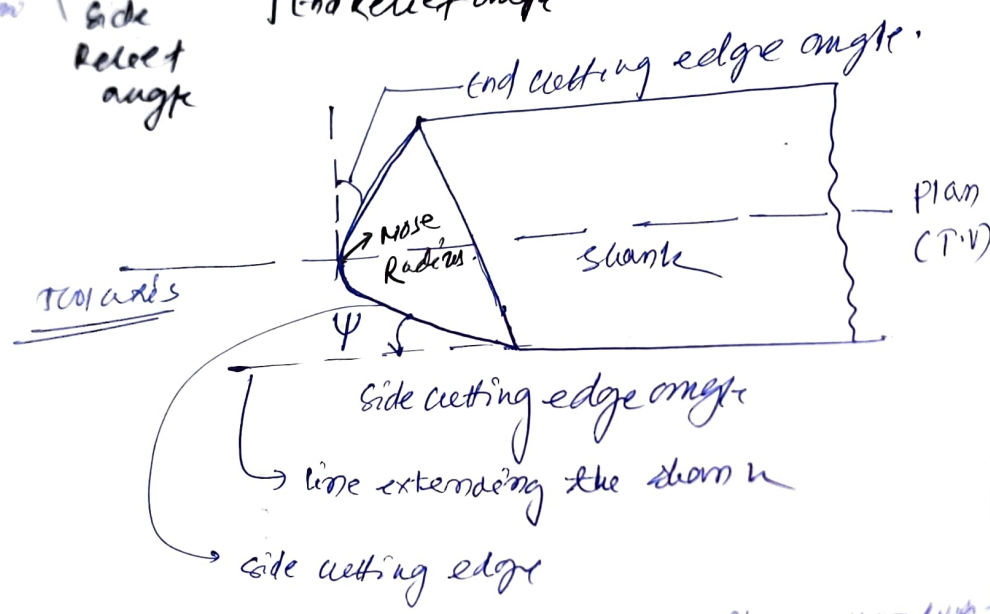 Side
Relief
angle
End Relief angle
End cutting edge angle.
Plan
(T.V)
Nose
Radius
Shank
Tool axis
ψ
Side cutting edge angle
line extending the shank
side cutting edge